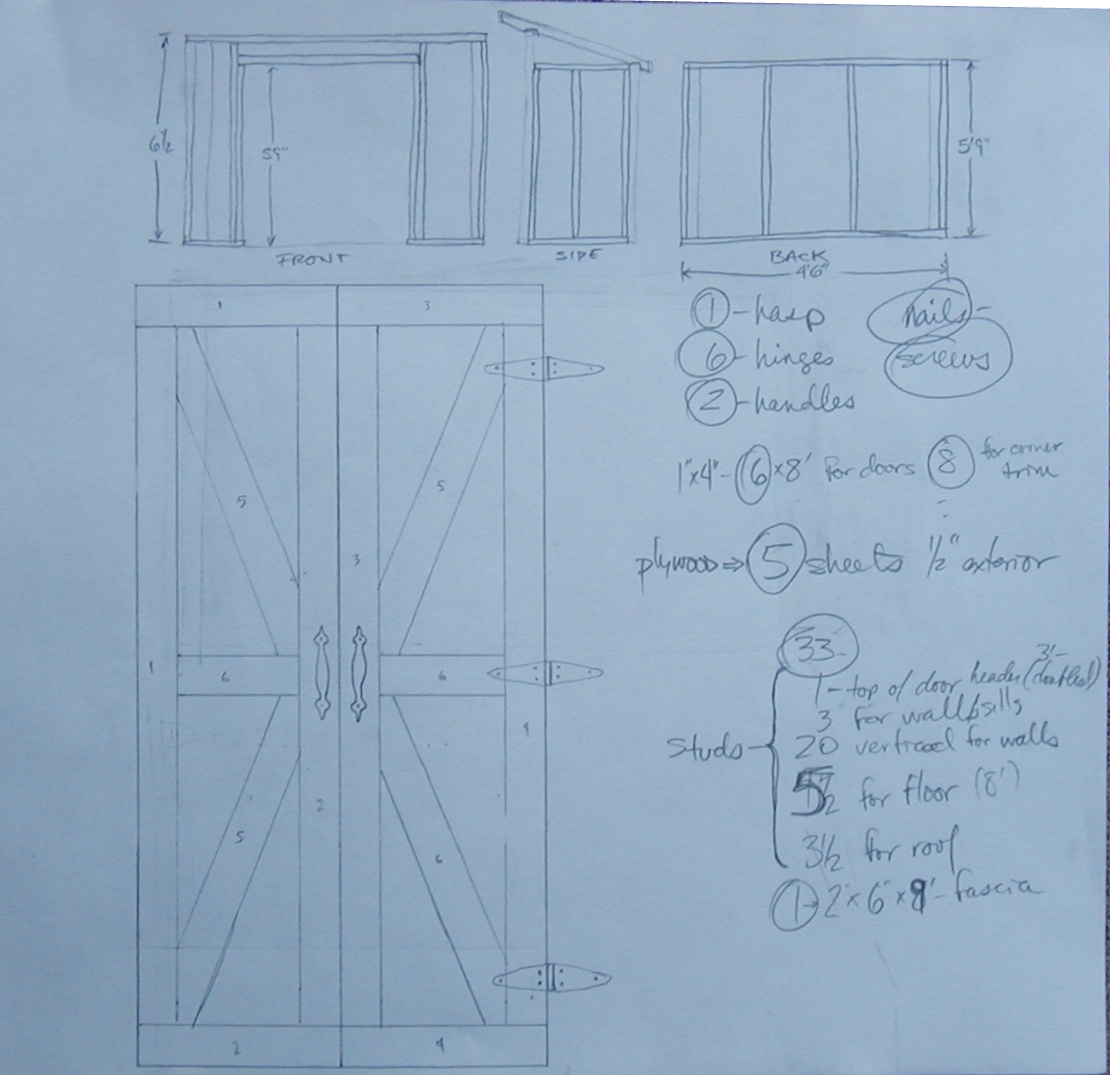 6½
5'9"
5'9"
FRONT
SIDE
BACK
4'6"
1
3
1-hasp
nails-
6-hinges
screws
2-handles
1"x4"-6x8' for doors 8 for corner
trim
5
5
3
plywood⇒5 sheets ½" exterior
1
6
6
33
1-top of door header (doubled)
3'-
3 for wall sills
studs
20 vertical for walls
4
2
5½ for floor (8')
5
6
3½ for roof
1→2"x6"x8'-fascia
2
4